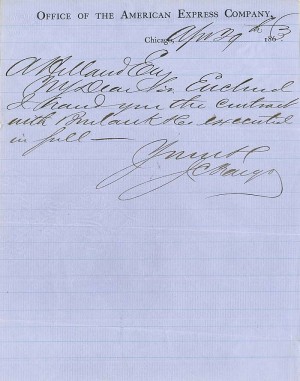 OFFICE OF THE AMERICAN EXPRESS COMPANY,
Chicago, Apr 29th 1863
A Holland Esq
My Dear Sir Enclosed
I hand you the contract
with Burbank & Co executed
in full —
Yours &c
J C Fargo